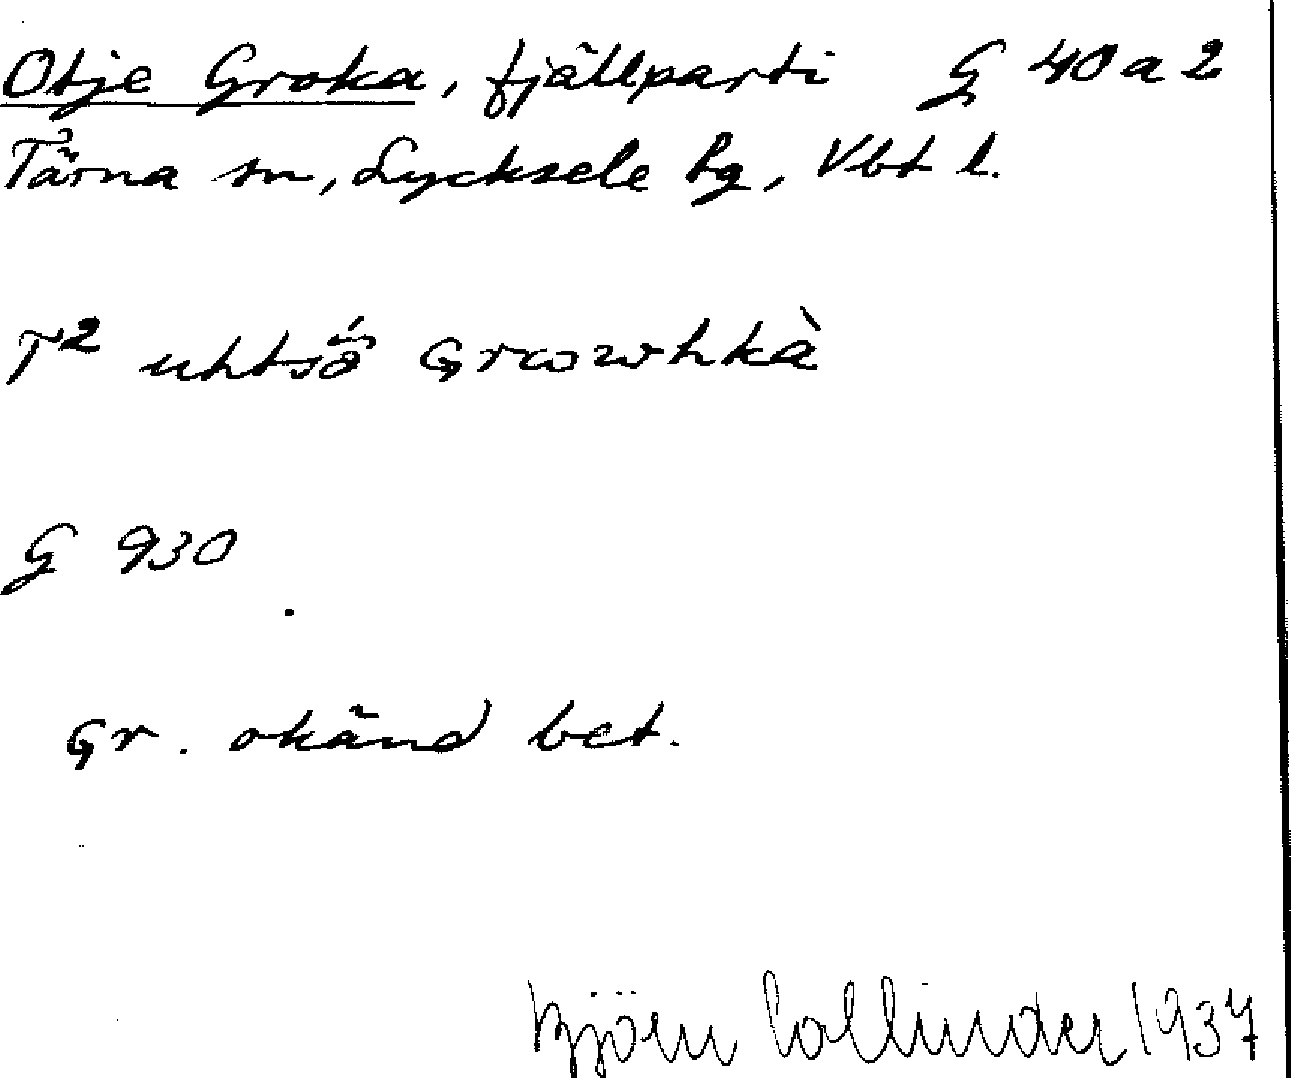 Otje Groka, fjällparti G 40 a 2
Tärna sn, Lycksele hg, Vbt l.
T² uhtsȫ́ Grωωhkà
G 930
Gr. okänd bet.
Björn Collinder 1937